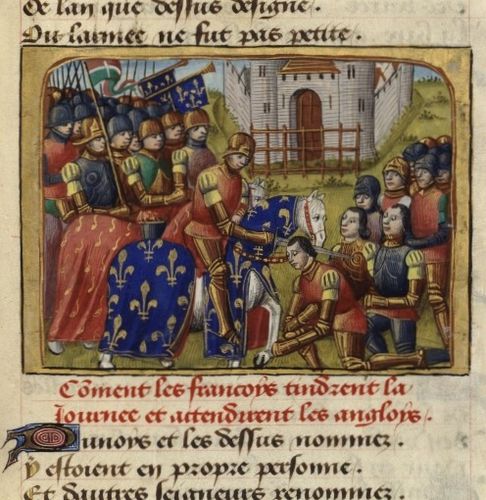 De lan que dessus designe.
Ou larmee ne fut pas petite.
Cōment les francoys tindrent la
Journee et actendirent les angloys.
Dunoys et les dessus nommez.
y estoient en propre personne.
Et dautres seigneurs renommez